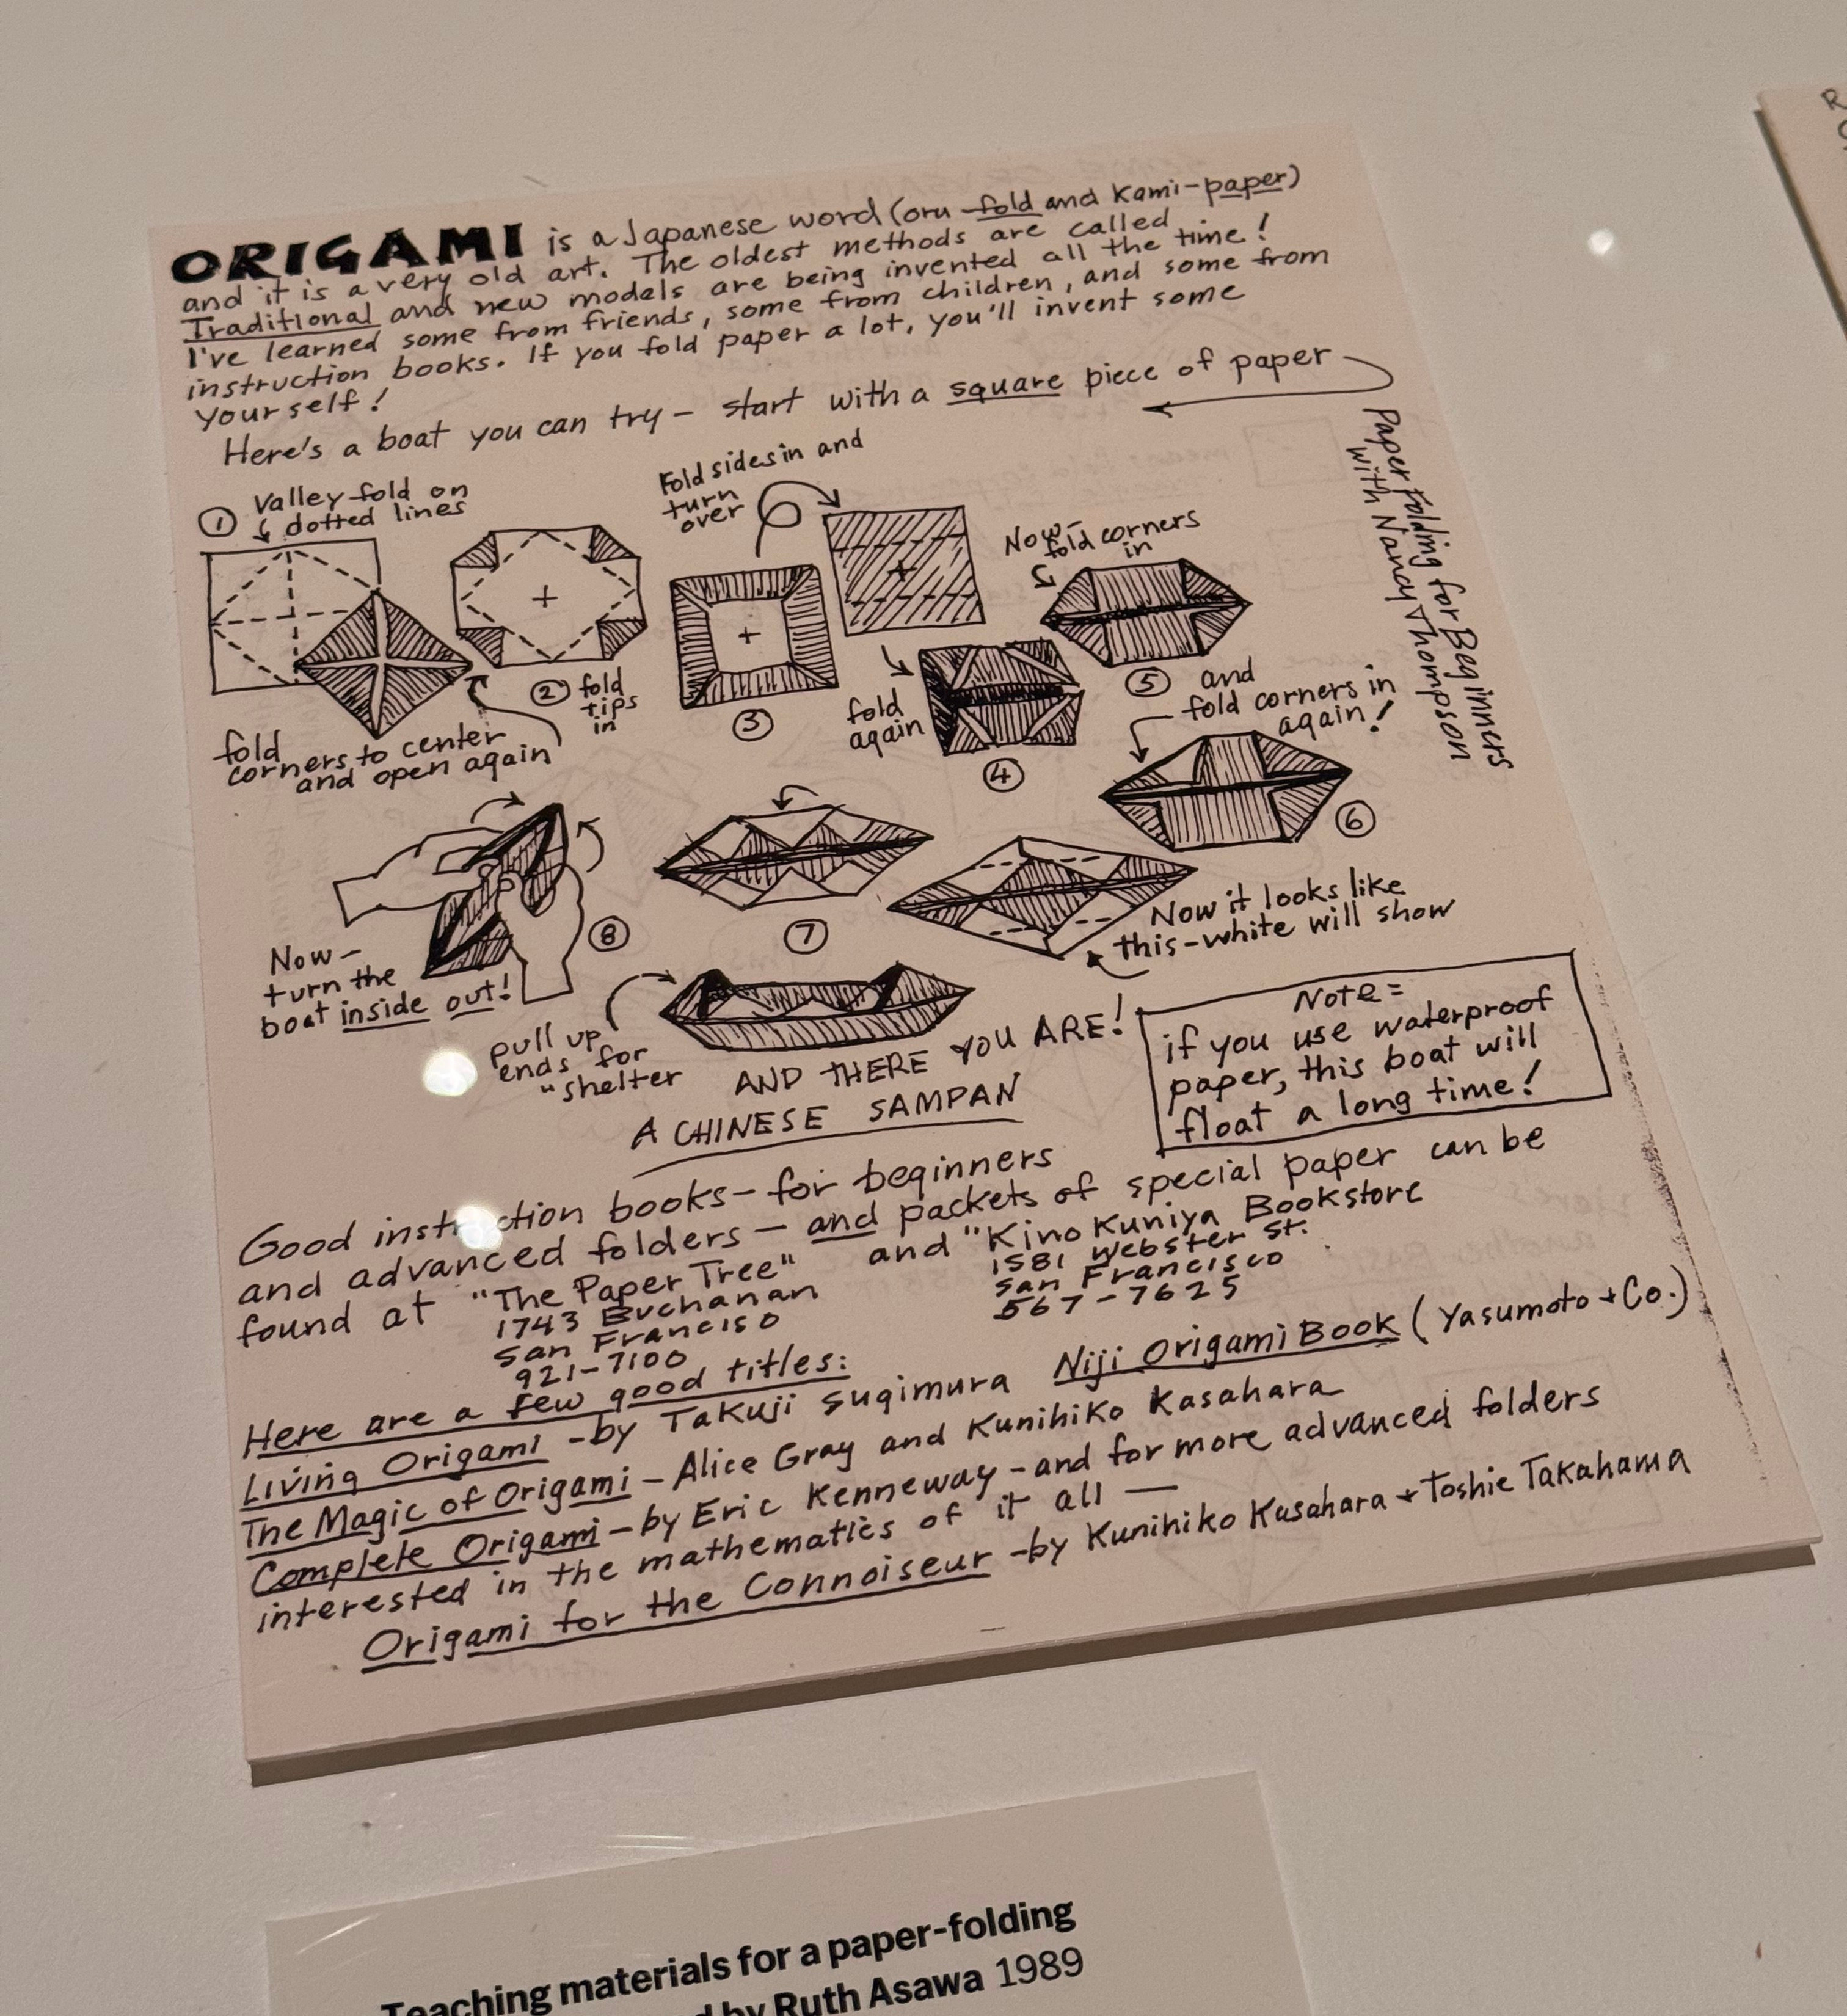 ORIGAMI is a Japanese word (oru-fold and Kami-paper)
and it is a very old art. The oldest methods are called
Traditional and new models are being invented all the time!
I've learned some from friends, some from children, and some from
instruction books. If you fold paper a lot, you'll invent some
yourself!
Here's a boat you can try - start with a square piece of paper
Paper Folding for Beginners
with Nancy Thompson
① Valley fold on
dotted lines
fold
corners to center
and open again
② fold
tips
in
Fold sides in and
turn
over
③
fold
again
④
Now-
fold corners
in
⑤ and
fold corners in
again!
⑥
Now it looks like
this-white will show
⑦
⑧
Now-
turn the
boat inside out!
pull up
ends for
"shelter
AND THERE YOU ARE!
A CHINESE SAMPAN
Note=
if you use waterproof
paper, this boat will
float a long time!
Good instruction books-for beginners
and advanced folders - and packets of special paper can be
found at "The Paper Tree" and "Kino Kuniya Bookstore
1743 Buchanan
San Franciso
921-7100
1581 Webster St.
San Francisco
567-7625
Here are a few good titles: Niji Origami Book (Yasumoto + Co.)
Living Origami -by Takuji Sugimura
The Magic of Origami - Alice Gray and Kunihiko Kasahara
Complete Origami - by Eric Kenneway - and for more advanced folders
interested in the mathematics of it all —
Origami for the Connoiseur -by Kunihiko Kasahara + Toshie Takahama
Teaching materials for a paper-folding
by Ruth Asawa 1989